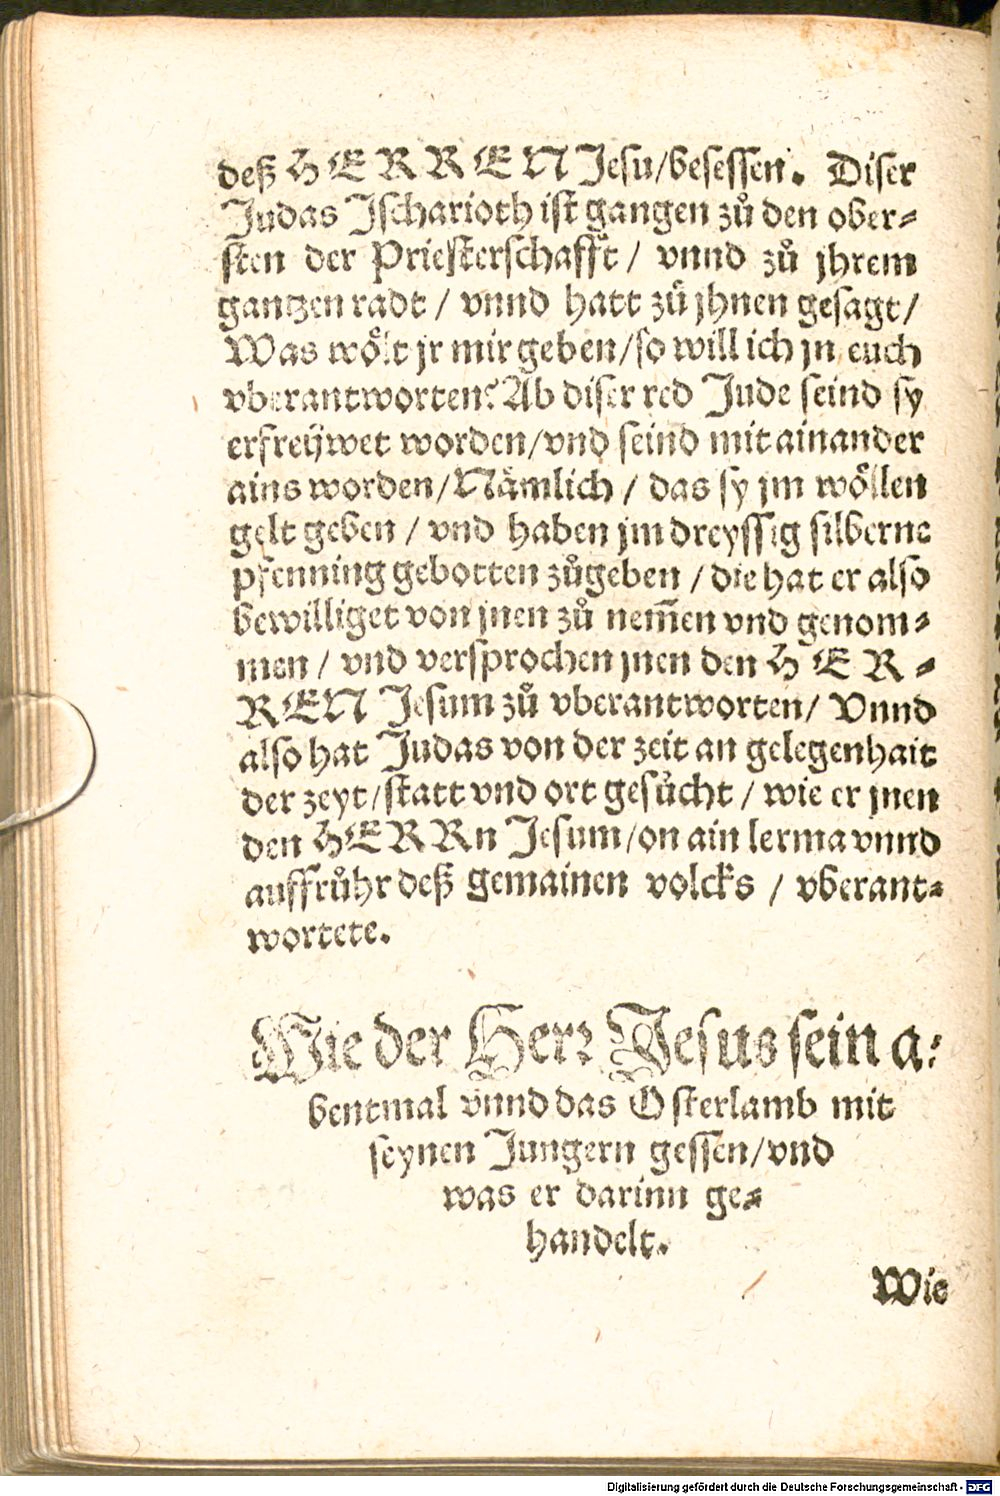 deß HERREN Jesu/besessen. Diser
Judas Jscharioth ist gangen zů den ober-
sten der Priesterschafft / vnnd zů jhrem
gantzen radt / vnnd hatt zů jhnen gesagt /
Was wölt jr mir geben/so will ich jn euch
vberantworten? Ab diser red Jude seind sy
erfreijwet worden/vnd seind mit ainander
ains worden/Nämlich / das sy jm wöllen
gelt geben / vnd haben jm dreyssig silberne
pfenning gebotten zůgeben / die hat er also
bewilliget von jnen zů nem̃en vnd genom-
men / vnd versprochen jnen den HER-
REN Jesum zů vberantworten/ Vnnd
also hat Judas von der zeit an gelegenhait
der zeyt/statt vnd ort gesůcht / wie er jnen
den HERRn Jesum/on ain lerma vnnd
auffrůhr deß gemainen volcks / vberant-
wortete.
Wie der Herr Jesus sein a-
bentmal vnnd das Osterlamb mit
seynen Jungern gessen/vnd
was er darinn ge-
handelt.
Wie
Digitalisierung gefördert durch die Deutsche Forschungsgemeinschaft - DFG